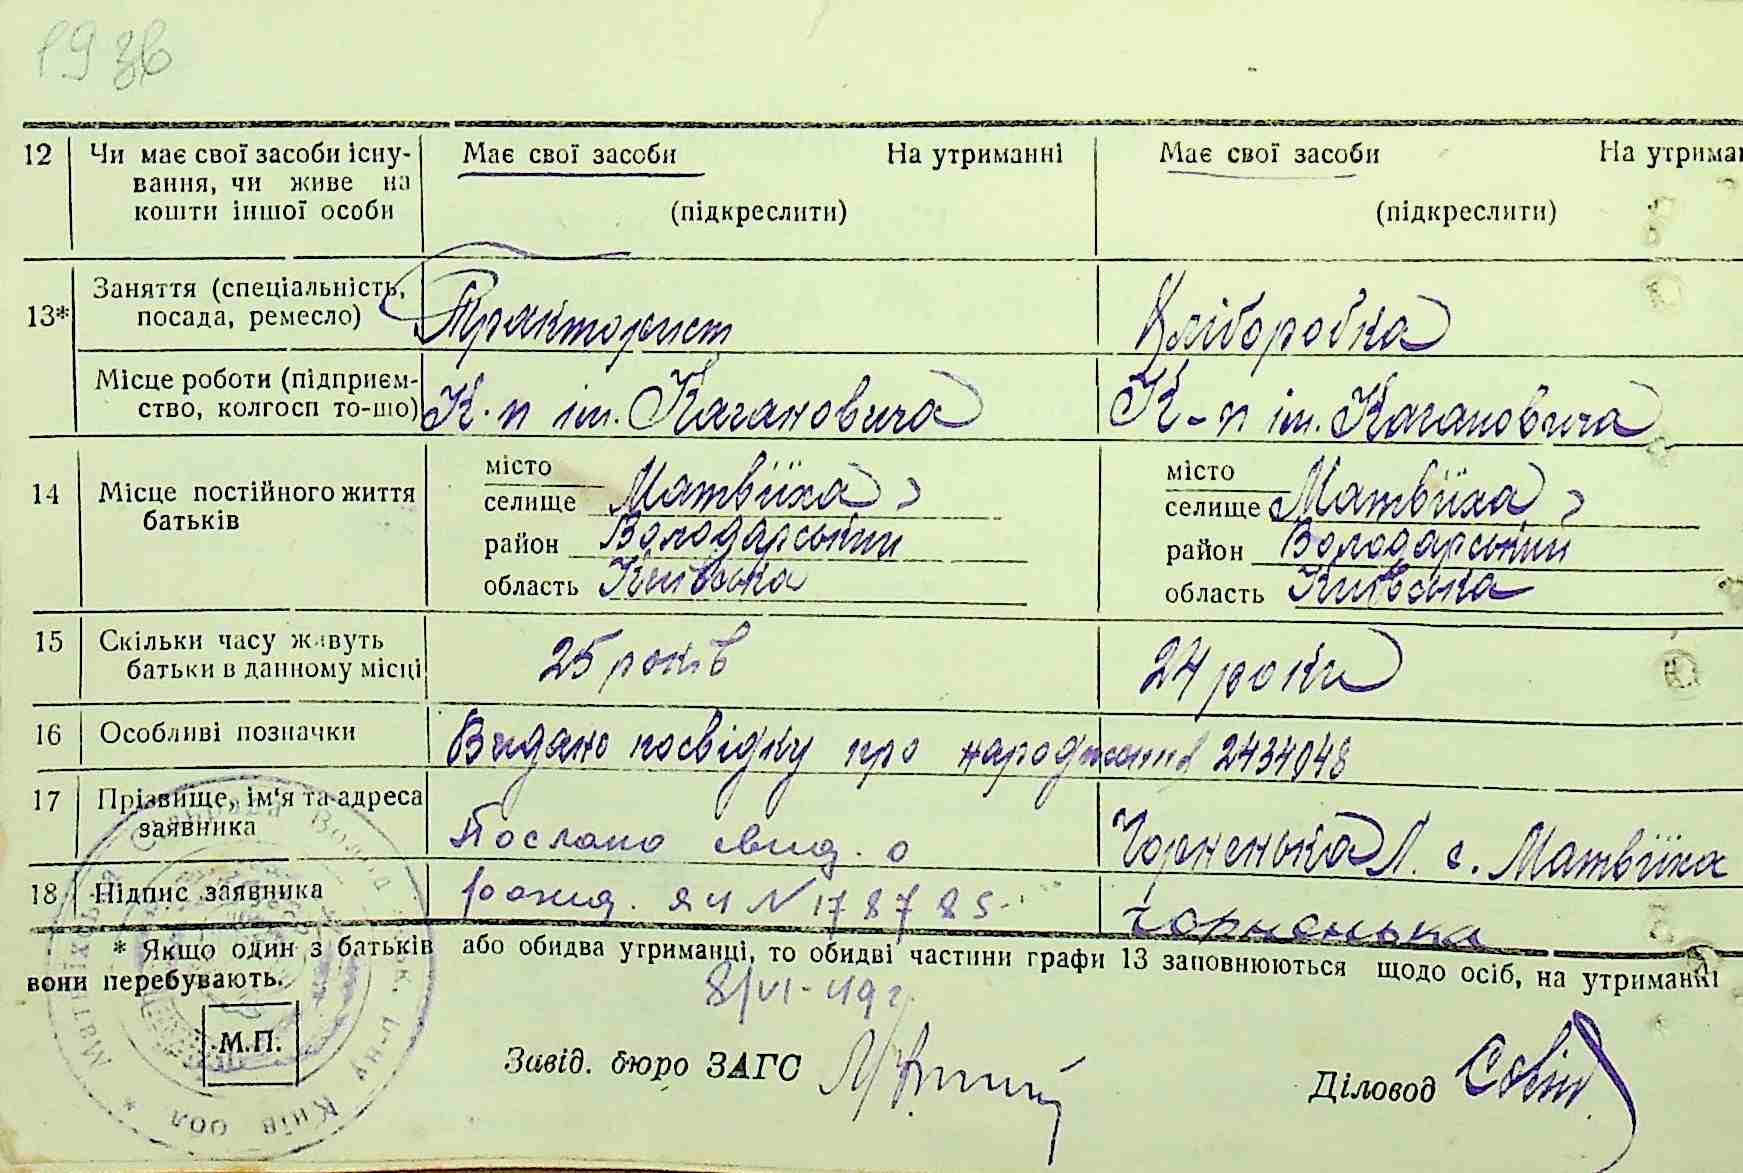 19 зв
12 Чи має свої засоби існу- Має свої засоби На утриманні Має свої засоби На утрима
вання, чи живе на
кошти іншої особи (підкреслити) (підкреслити)
13* Заняття (спеціальність, посада, ремесло) Тракторист Хліборобка
Місце роботи (підприєм-
ство, колгосп то-що) К-п ім. Кагановича К-п ім. Кагановича
14 Місце постійного життя батьків
місто місто
селище Матвїіха селище Матвїіха
район Володарський район Володарський
область Київська область Київська
15 Скільки часу живуть
батьки в данному місці 25 років 24 роки
16 Особливі позначки Видано посвідку про народження 2434048
17 Прізвище, ім'я та адреса
заявника Послано свид. о Чорненька Л. с. Матвїіха
18 Підпис заявника рожд. ЯЧ N 178785 Чорненька
* Якщо один з батьків або обидва утриманці, то обидві частини графи 13 заповнюються щодо осіб, на утриманні
вони перебувають.
8/VI-49 г.
М.П.
Завід. бюро ЗАГС
Діловод
Київ обл